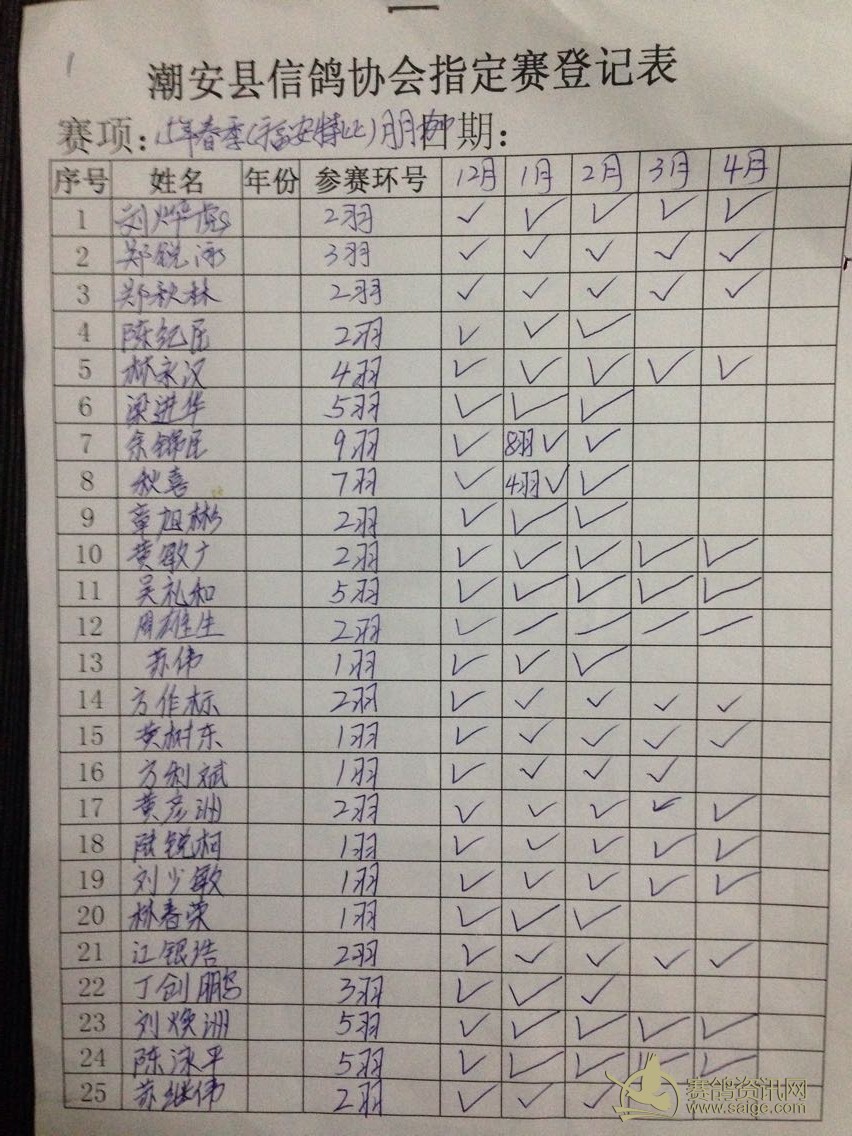 1
潮安县信鸽协会指定赛登记表
赛项:15年春季(福安特比) 日期:
序号 姓名 年份 参赛环号 12月 1月 2月 3月 4月
1 刘烨虎 2羽 ✓ ✓ ✓ ✓ ✓
2 郑锐 3羽 ✓ ✓ ✓ ✓ ✓
3 郑秋林 2羽 ✓ ✓ ✓ ✓ ✓
4 陈纪臣 2羽 ✓ ✓ ✓
5 林永汉 4羽 ✓ ✓ ✓ ✓ ✓
6 梁进华 5羽 ✓ ✓ ✓
7 余锦臣 9羽 ✓ 8羽✓ ✓
8 秋喜 7羽 ✓ 4羽✓ ✓
9 章旭彬 2羽 ✓ ✓ ✓
10 黄敏广 2羽 ✓ ✓ ✓ ✓ ✓
11 吴礼和 5羽 ✓ ✓ ✓ ✓ ✓
12 周雄生 2羽 ✓ ✓ ✓ ✓ ✓
13 苏伟 1羽 ✓ ✓ ✓
14 方作标 2羽 ✓ ✓ ✓ ✓ ✓
15 黄树东 1羽 ✓ ✓ ✓ ✓ ✓
16 方利斌 1羽 ✓ ✓ ✓ ✓
17 黄彦洲 2羽 ✓ ✓ ✓ ✓ ✓
18 陆锐柯 1羽 ✓ ✓ ✓ ✓ ✓
19 刘少敏 1羽 ✓ ✓ ✓ ✓ ✓
20 林春荣 1羽 ✓ ✓ ✓
21 江银浩 2羽 ✓ ✓ ✓ ✓ ✓
22 丁创鹏 3羽 ✓ ✓ ✓
23 刘焕洲 5羽 ✓ ✓ ✓ ✓ ✓
24 陈泳平 5羽 ✓ ✓ ✓ ✓ ✓
25 苏继伟 2羽 ✓ ✓ ✓
赛鸽资讯网
www.saige.com